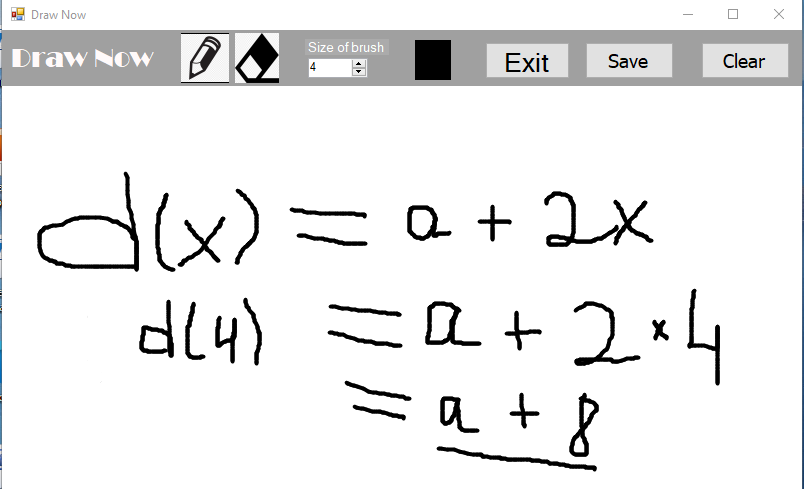 Draw Now
Draw Now
Size of brush
4
Exit
Save
Clear
d(x) = a + 2x
d(4) = a + 2 × 4
= a + 8